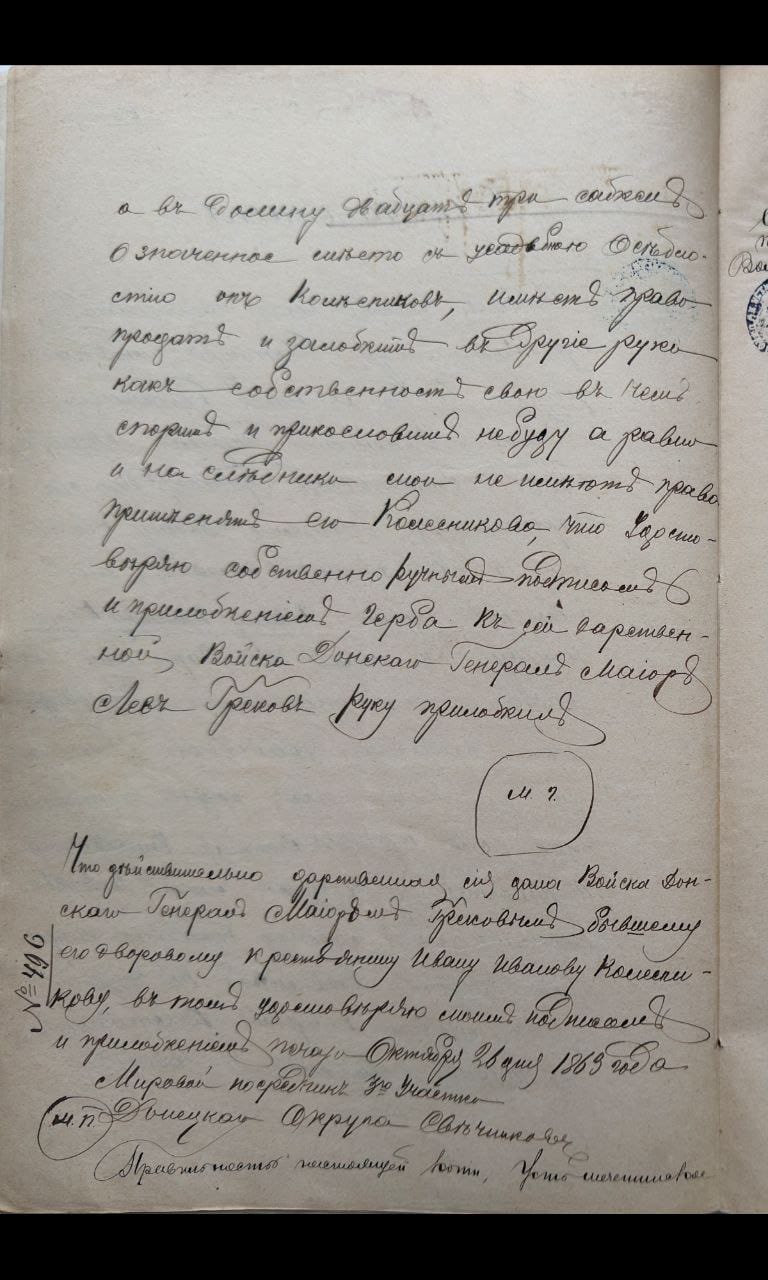 а въ Долину двадцать три сажень
Означенное мѣсто съ усадьбою Осѣдло-
стію онъ Колѣсниковъ, имѣетъ право
продать и заложить въ Другіе руки
какъ собственность свою въ чемъ
спорить и прикословить небуду а равно
и наслѣдники мои не имѣютъ право
притѣснять его Колесникова, что Удосто-
вѣряю собственно ручнымъ подписомъ
и приложеніемъ Герба къ сей дарствен-
ной, Войска Донскаго Генералъ Маіоръ
Левъ Грековъ руку приложилъ
М. П.
Что дѣйствительно дарственная сія дана Войска Дон-
скаго Генералъ Маіоромъ Грековымъ бывшему
его дворовому крестьянину Ивану Иванову Колесни-
кову, въ томъ удостовѣряю моимъ подписомъ
и приложеніемъ печати Октября 26 дня 1863 года
№ 496
Мировой посредникъ 3го Участка
М. П. Донецкаго Округа
Правильность настоящей копіи,